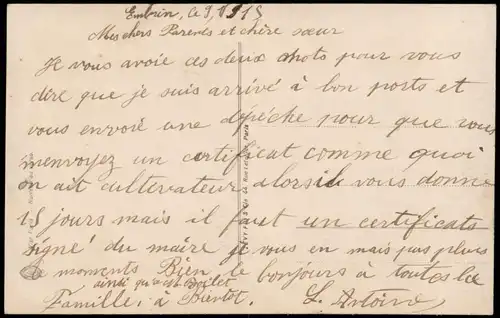 Embrun, le 9, 1915
Mes chers Parents et chère sœur
Je vous avoie ces deux mots pour vous
dire que je suis arrivé à bon ports et
vous envoie une dépêche pour que vous
menvoyez un certificat comme quoi
on ait cultervateur alorsils vous donne
15 jours mais il faut un certificats
signé du maire je vous en mais pas plus
de moments Bien le bonjours à toutes la
ainsi qu'a M Boilet
Famille, à Bientot. L. Antoine